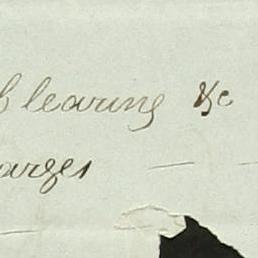 learing &c
arges —